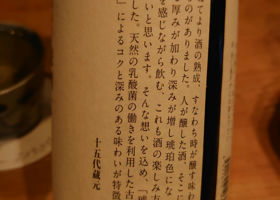 てより酒の熟成、すなわち時が醸す味わ
のがありました。人が醸した酒、そこに
厚みが加わり深みが増し琥珀色にな
を感じながら飲む、これも酒の楽しみ方
いと思います。そんな想いを込め、「琥
した。天然の乳酸菌の働きを利用した古
」によるコクと深みのある味わいが特徴
十五代蔵元